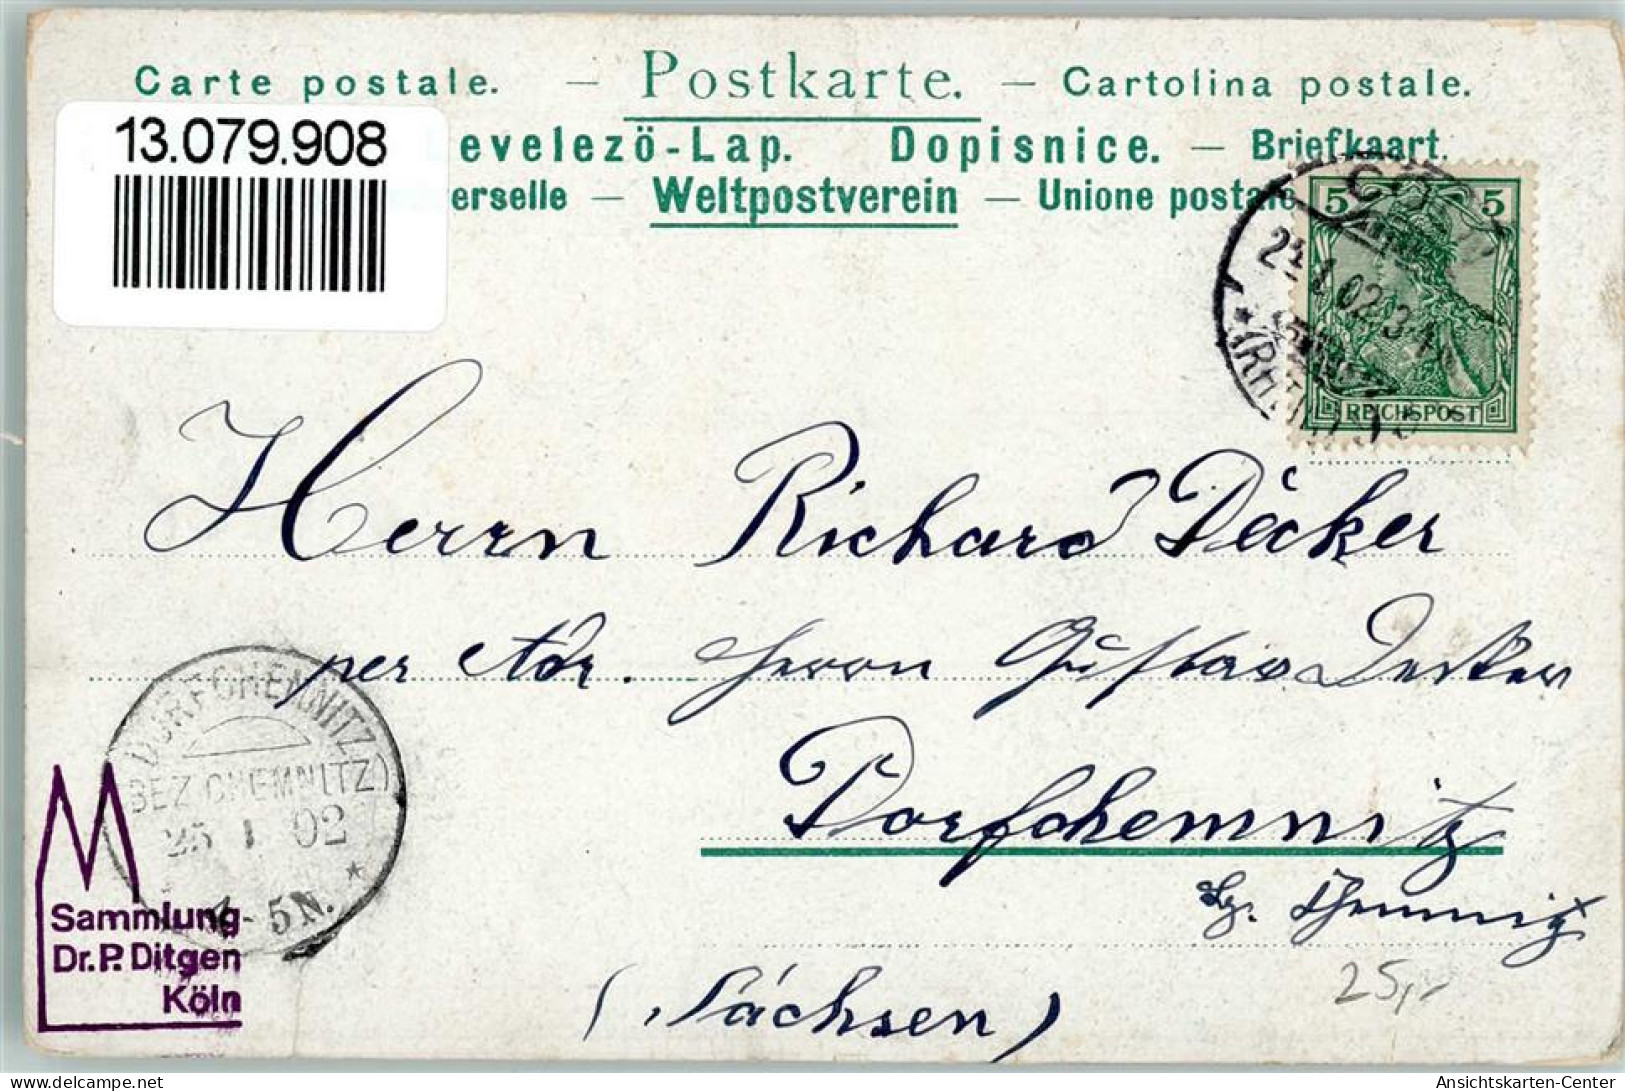 Carte postale. — Postkarte. — Cartolina postale.
13.079.908
evelezö-Lap. Dopisnice. — Briefkaart.
erselle — Weltpostverein — Unione postale
5 5
REICHSPOST
Herrn Richard Decker
per Adr. Herrn Gustav Decker
Dorfchemnitz
Bz. Chemnitz
(Sachsen)
25,-
DORFCHEMNITZ
(BEZ. CHEMNITZ)
25 1 02
5N.
Sammlung
Dr. P. Ditgen
Köln
delcampe.net
Ansichtskarten-Center